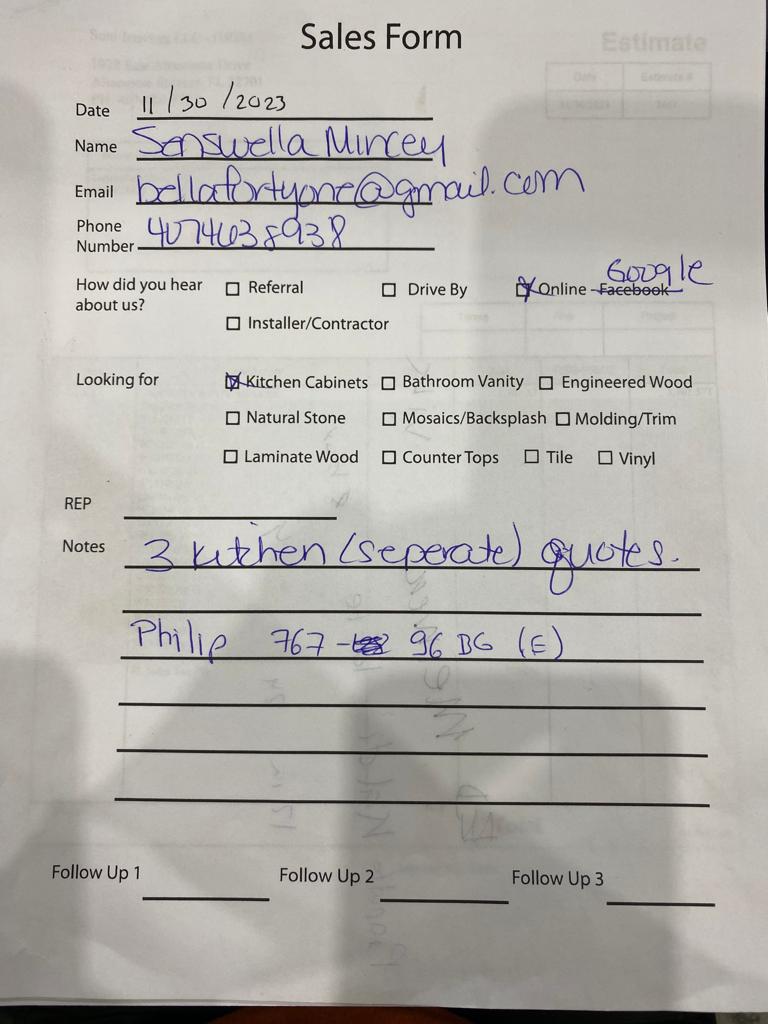 Sales Form
Estimate
Date 11/30/2023
Name Senswella Mincey
Email bellafortyone@gmail.com
Phone
Number 4074638938
Google
How did you hear
about us?
☐ Referral ☐ Drive By ☒ Online - Facebook
☐ Installer/Contractor
Looking for ☒ Kitchen Cabinets ☐ Bathroom Vanity ☐ Engineered Wood
☐ Natural Stone ☐ Mosaics/Backsplash ☐ Molding/Trim
☐ Laminate Wood ☐ Counter Tops ☐ Tile ☐ Vinyl
REP
Notes 3 kitchen (seperate) quotes.
Philip 767 - 96 BG (E)
Follow Up 1 Follow Up 2 Follow Up 3